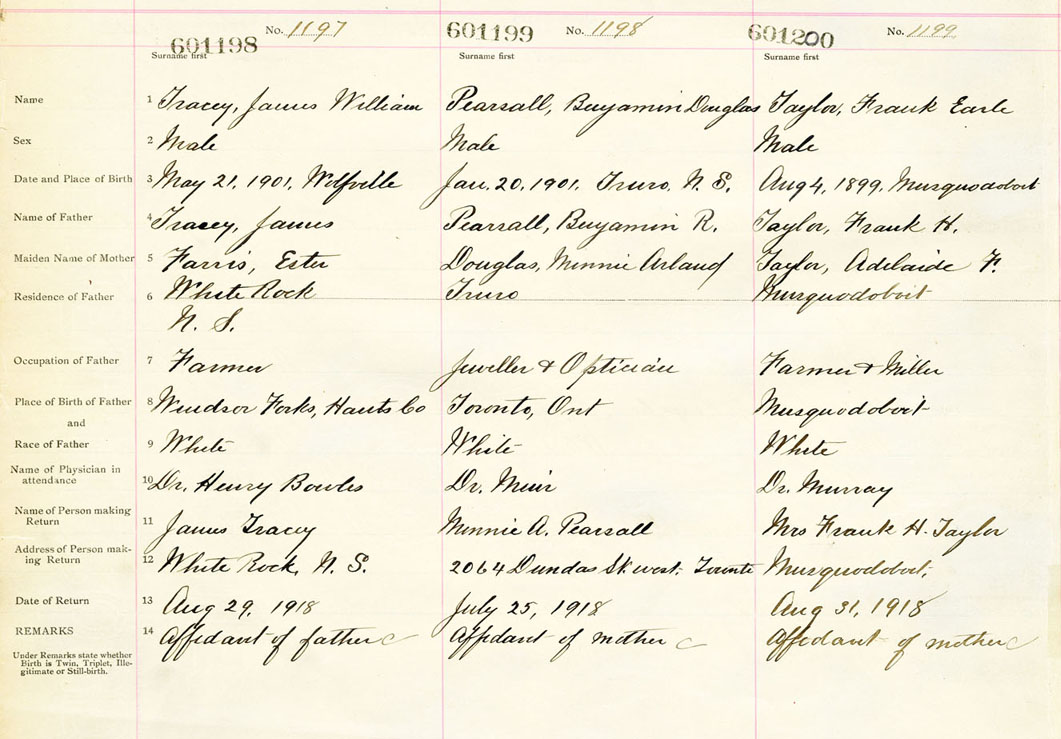 No. 1197 No. 1198 No. 1199
601198 601199 601200
Surname first Surname first Surname first
Name 1 Tracey, James William Pearsall, Benjamin Douglas Taylor, Frank Earle
Sex 2 Male Male Male
Date and Place of Birth 3 May 21, 1901, Wolfville Jan. 20, 1901, Truro, N. S. Aug 4, 1899, Musquodoboit
Name of Father 4 Tracey, James Pearsall, Benjamin R. Taylor, Frank H.
Maiden Name of Mother 5 Farris, Ester Douglas, Minnie Taylor, Adelaide F.
Residence of Father 6 White Rock Truro Musquodoboit
N. S.
Occupation of Father 7 Farmer Jeweller & Optician Farmer & Miller
Place of Birth of Father 8 Windsor Forks, Hants Co Toronto, Ont Musquodoboit
and
Race of Father 9 White White White
Name of Physician in
attendance 10 Dr. Henry Bowles Dr. Muir Dr. Murray
Name of Person making
Return 11 James Tracey Minnie A. Pearsall Mrs Frank H. Taylor
Address of Person mak-
ing Return 12 White Rock, N. S. 2064 Dundas St. west, Toronto Musquodoboit,
Date of Return 13 Aug 29, 1918 July 25, 1918 Aug 31, 1918
REMARKS 14 Affidant of father Affidant of mother Affidant of mother
Under Remarks state whether
Birth is Twin, Triplet, Ille-
gitimate or Still-birth.